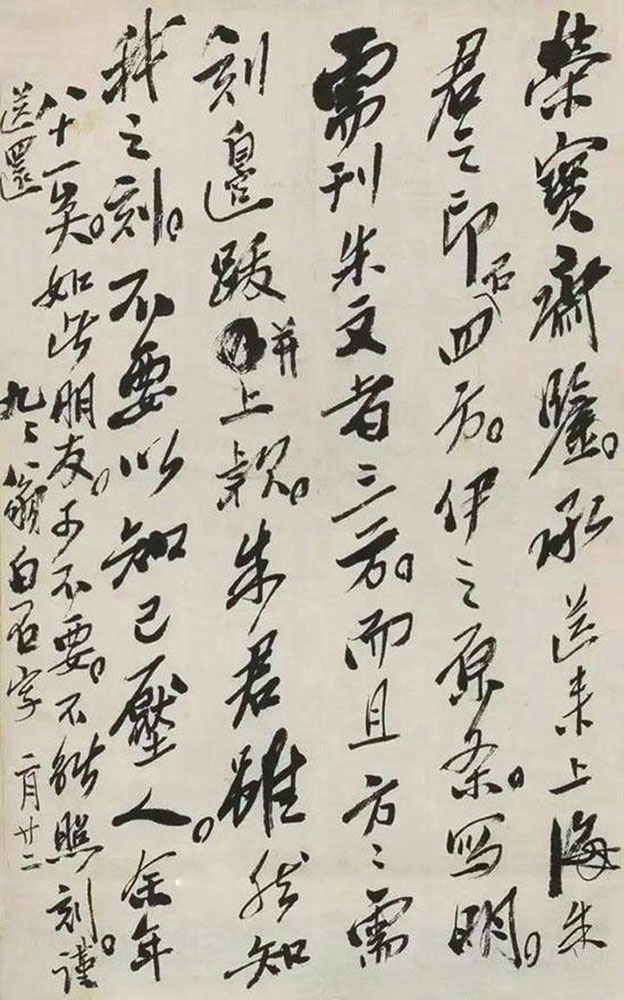 荣寳齋鑒。承送来上海朱
君之印石四方。伊之原条。写明。
需刊朱文者三方。而且方之需
刻邊跋并上款。朱君雖然知
我之刻。不要以知己壓人。余年
八十一矣。如此朋友。予不要。不能照刻。謹
送還
白石字 二月廿二